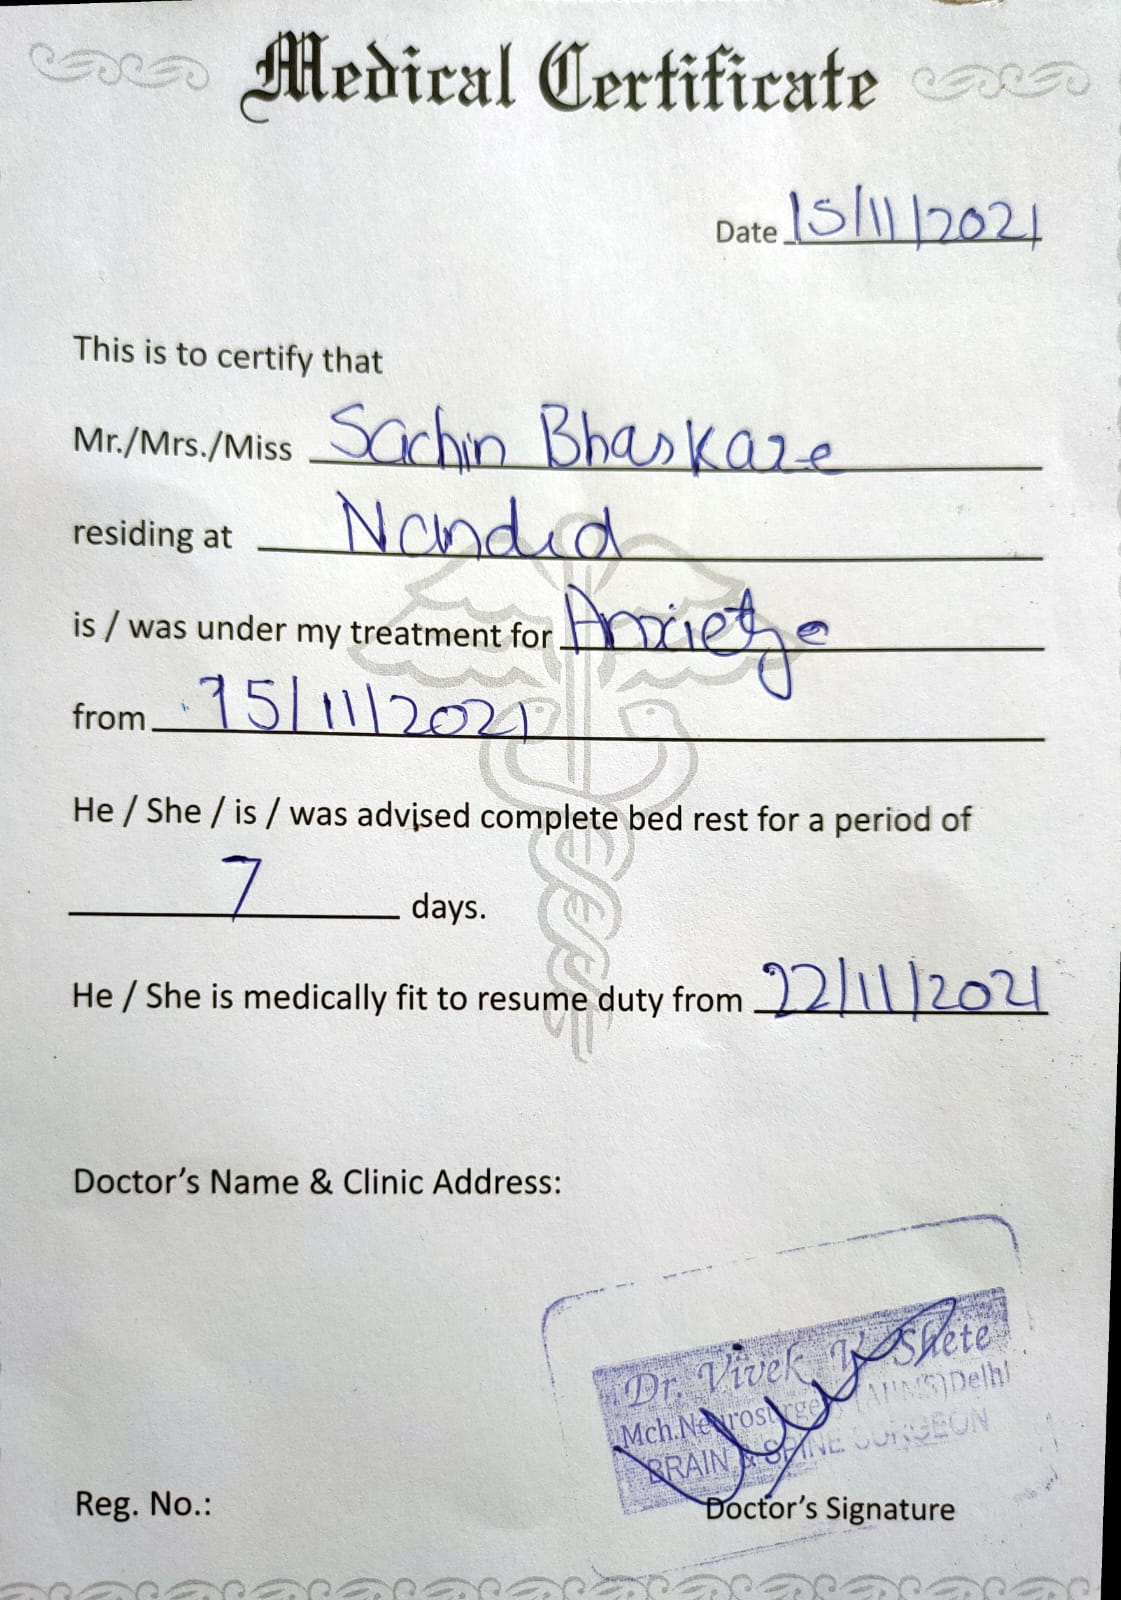 Medical Certificate
Date 15/11/2021
This is to certify that
Mr./Mrs./Miss Sachin Bhaskare
residing at Nanded
is / was under my treatment for Anxiety
from 15/11/2021
He / She / is / was advised complete bed rest for a period of
7 days.
He / She is medically fit to resume duty from 22/11/2021
Doctor's Name & Clinic Address:
Dr. Vivek Y Shete
Mch.Neurosurgery (AIIMS)Delhi
BRAIN & SPINE SURGEON
Reg. No.:
Doctor's Signature